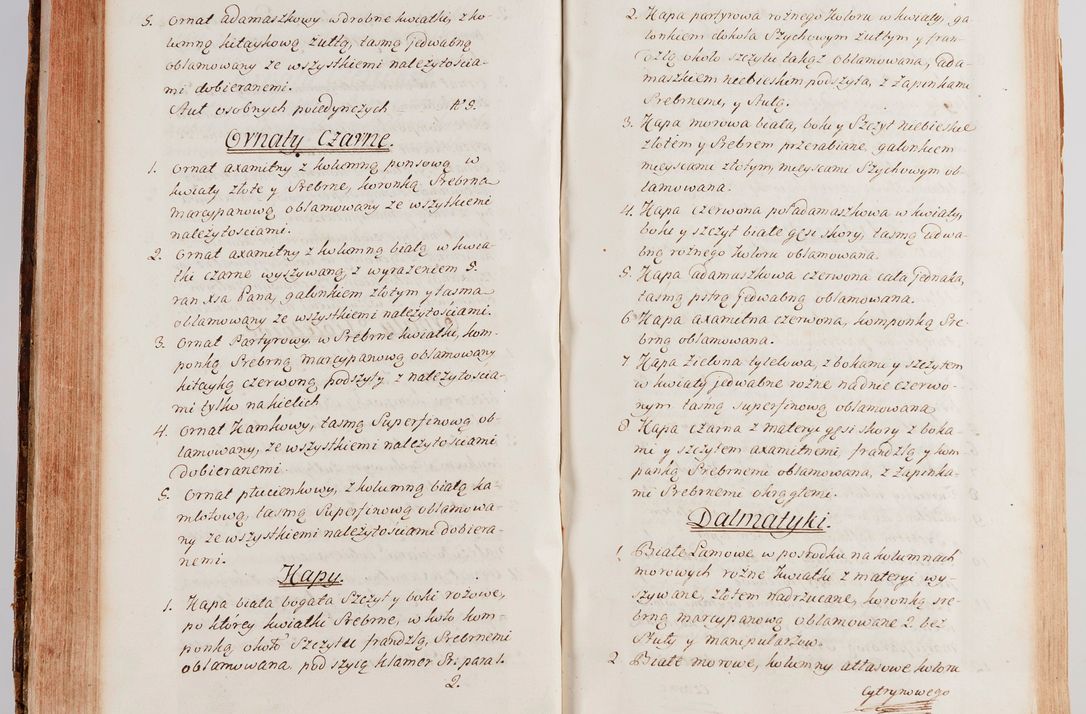 5. Ornat adamaszkowy w drobne kwiatki, z ko-
lumną kitaykową żułtą, tasmą jedwabną
oblamowany ze wszystkiemi należytościa-
mi dobieranemi.
Stuł osobnych poiedynczych
Ornaty Czarne.
1. Ornat axamitny z kolumną ponsową w
kwiaty złote y srebrne, koronką srebrną
marcypanową oblamowany ze wszytkiemi
należytościami.
2. Ornat axamitny z kolumną białą w kwia-
tki czarne wyszywaną, z wyrażeniem 5.
ran Xsa Pana, galonkiem złotym y tasmą
oblamowany ze wszystkiemi należytościami.
3. Ornat Partyrowy, w srebrne kwiatki, kom-
ponką srebrną marcypanową oblamowany
kitayką czerwoną podszyty z należytościa-
mi tylko na kielich
4. Ornat Kamkowy, tasmą Superfinową ob-
lamowany, ze wszystkiemi należytościami
dobieranemi.
5. Ornat płucienkowy, z kolumną białą ka-
mlotową, tasmą Superfinową oblamowa-
ny ze wszystkiemi należytościami dobiera-
nemi.
Kapy.
1. Kapa biała bogata Szczyt y boki rożowe,
po ktorey kwiatki srebrne, w koło kom-
ponką, około Szczytu frandzlą, srebrnemi
oblamowana, pod szyią klamer Sr: para 1.
2.
2. Kapa partyrowa rożnego koloru w kwiaty, ga-
lonkiem dokoła Szychowym żułtym y fran-
dzlą około szczytu takąż oblamowana, ada-
maszkiem niebieskim podszyta, z zapinkami
srebrnemi, y stułą.
3. Kapa morowa biała, boki y Szczyt niebieskie
złotem y srebrem przerabiane, galonkiem
mieyscami złotym, mieyscami Szychowym ob-
lamowana.
4. Kapa czerwona poł adamaszkowa w kwiaty,
boki y szczyt białe gęsi skory, tasmą jedwa-
bną rożnego koloru oblamowana.
5. Kapa adamaszkowa czerwona cała jednaka,
tasmą pstrą jedwabną oblamowana.
6 Kapa axamitna czerwona, komponką sre-
brną oblamowana.
7 Kapa zielona tyselowa, z bokami y szczytem
w kwiaty jedwabne rożne na dnie czerwo-
nym tasmą superfinową oblamowana
8 Kapa czarna z materyi gęsi skory z boka-
mi y szczytem axamitnemi, frandzlą y kom-
panką srebrnemi oblamowana, z zapinka-
mi srebrnemi okrągłemi.
Dalmatyki.
1. Białe Lamowe, w posrodku na kolumnach
morowych rożne kwiatki z materyi wy-
szywane, złotem nadrzucane, koronką sre-
brną marcypanową oblamowane 2. bez
Stuły y manipularzow.
2 Białe morowe, kolumny atłasowe koloru
Cytrynowego